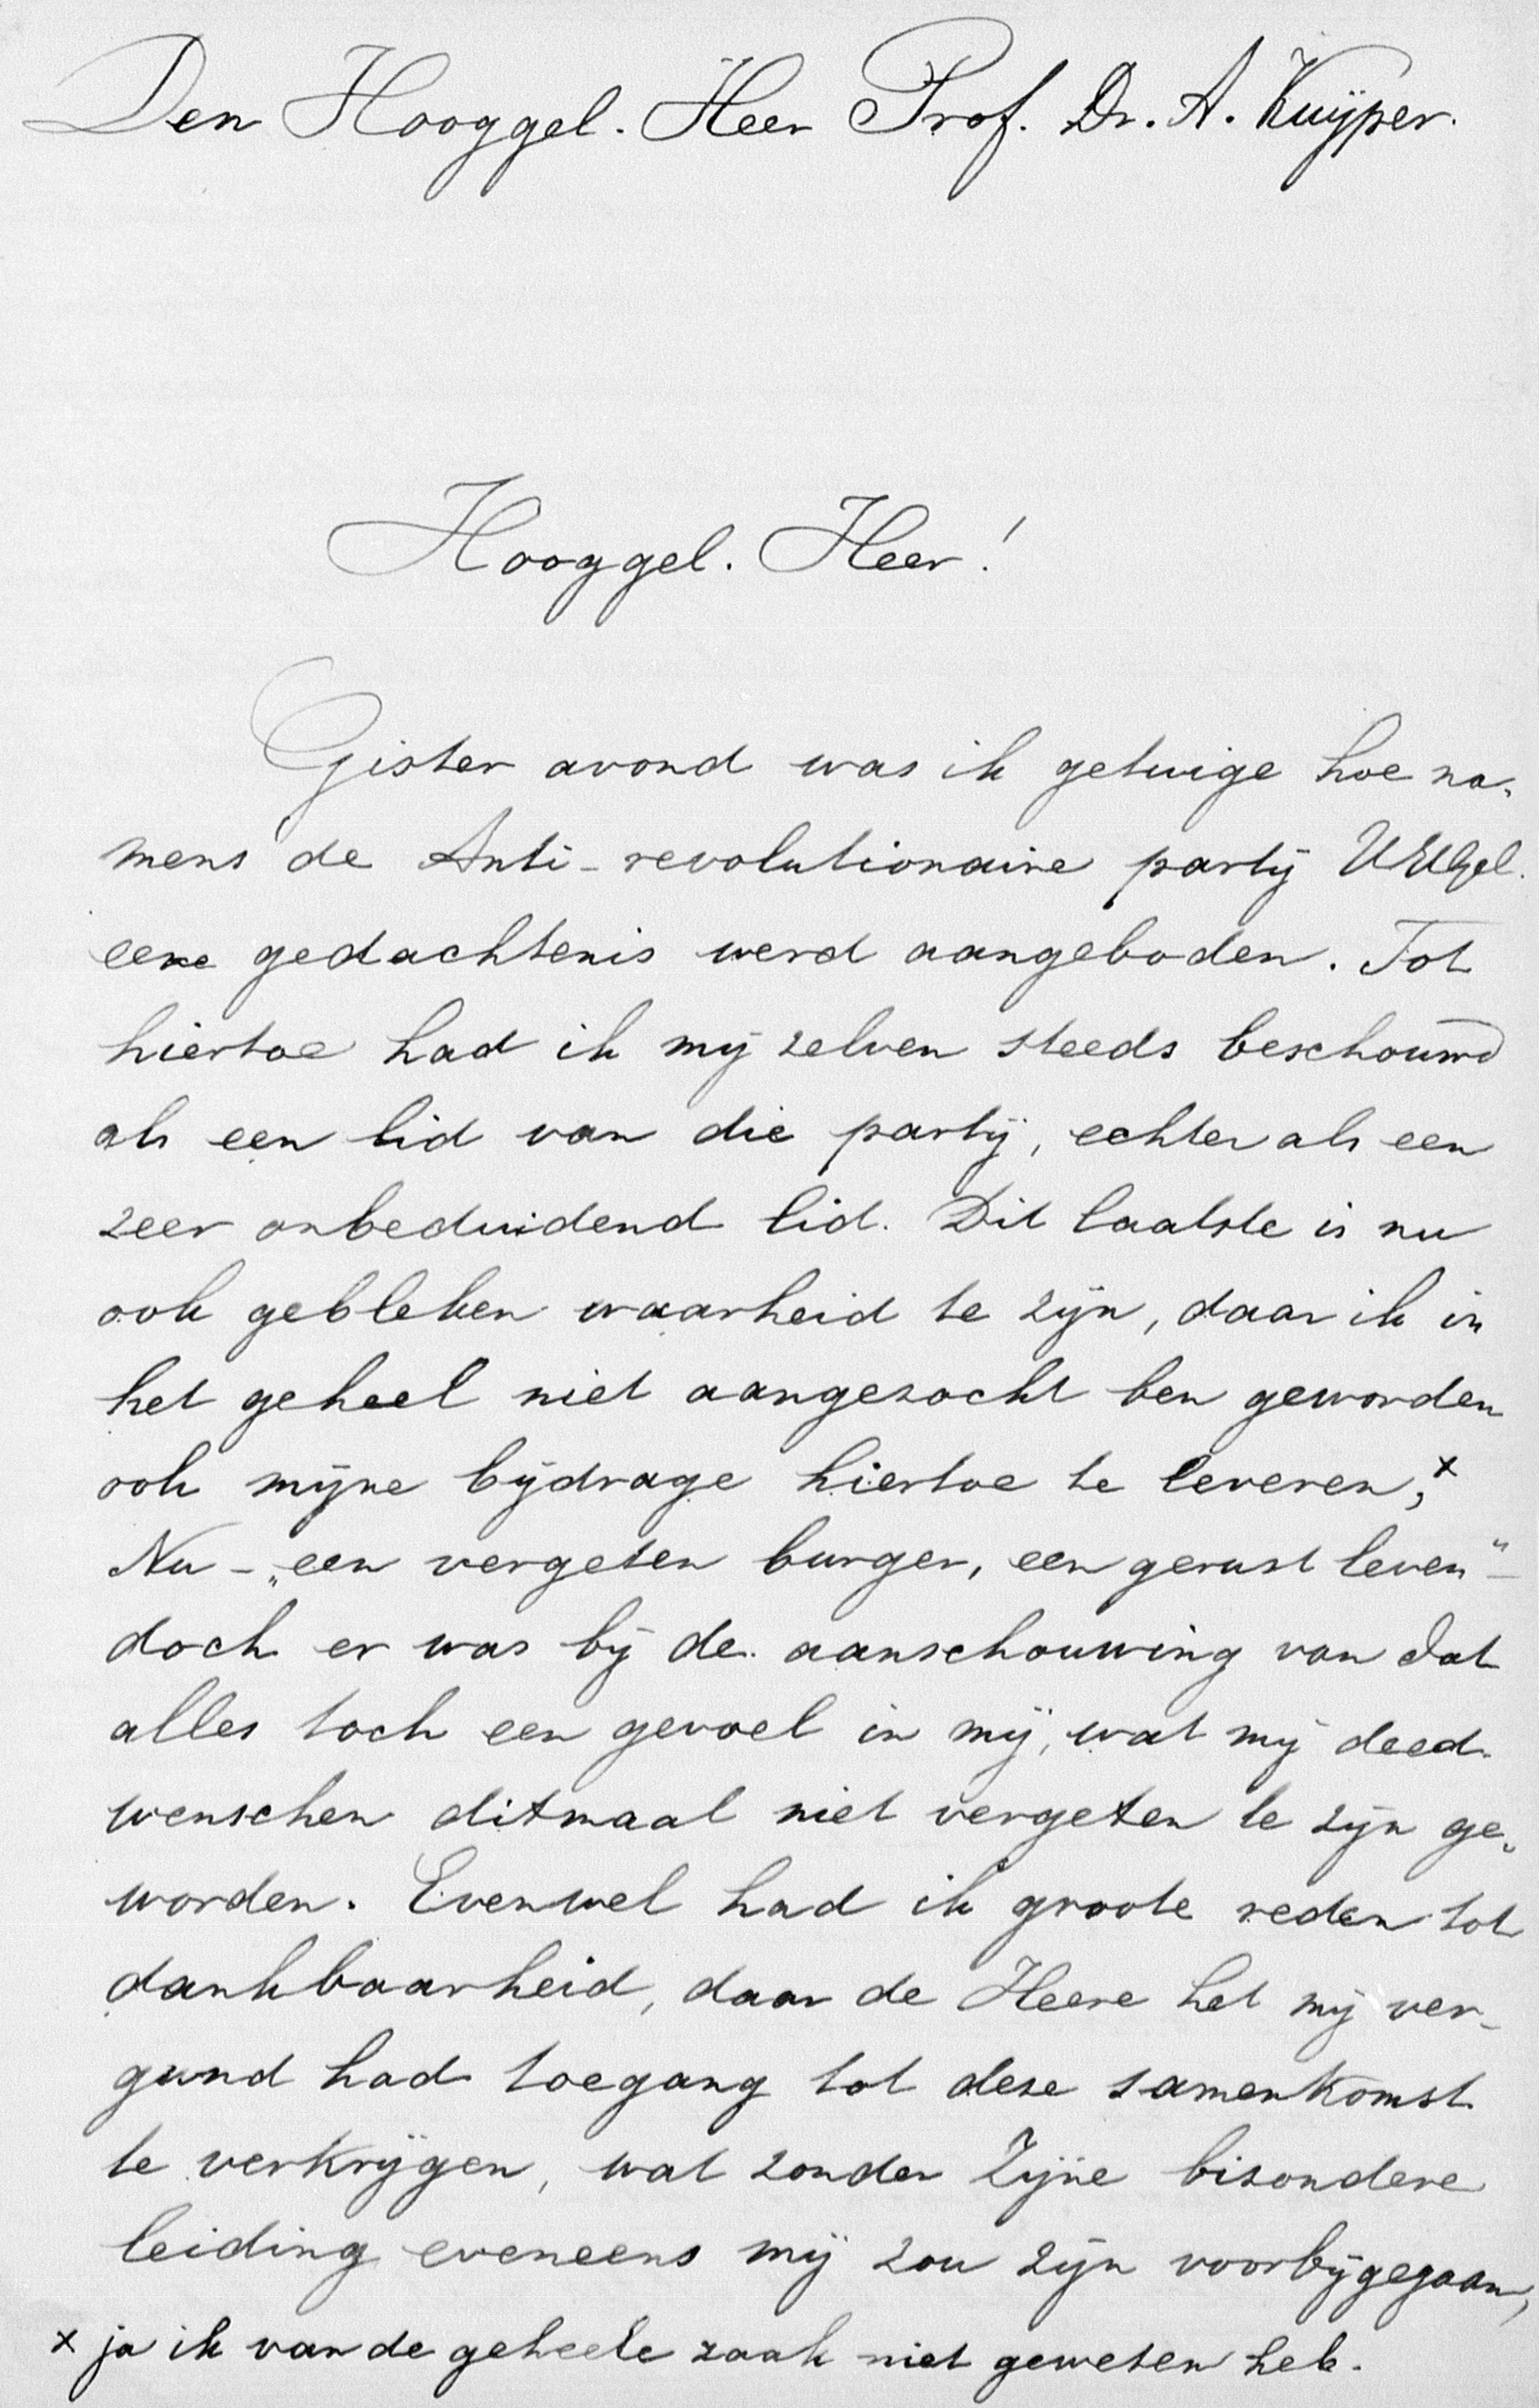 Den Hooggel. Heer Prof. Dr. A. Kuÿper.
Hooggel. Heer!
Gister avond was ik getuige hoe na-
mens de Anti-revolutionaire partÿ UHGel.
eene gedachtenis werd aangeboden. Tot
hiertoe had ik mÿ zelven steeds beschouwd
als een lid van die partÿ, echter als een
zeer onbeduidend lid. Dit laatste is nu
ook gebleken waarheid te zÿn, daar ik in
het geheel niet aangezocht ben geworden
ook mÿne bÿdrage hiertoe te leveren, x
Nu - „een vergeten burger, een gerust leven" -
doch er was bÿ de aanschouwing van dat
alles toch een gevoel in mÿ, wat mÿ deed
wenschen ditmaal niet vergeten te zÿn ge-
worden. Evenwel had ik groote reden tot
dankbaarheid, daar de Heere het mÿ ver-
gund had toegang tot deze samenkomst
te verkrÿgen, wat zonder Zÿne bizondere
leiding eveneens mÿ zou zÿn voorbÿgegaan,
x ja ik van de geheele zaak niet geweten heb.